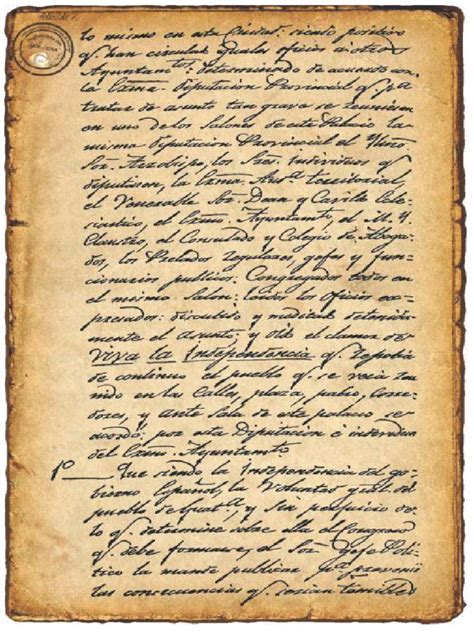 lo mismo en esta Ciudad: siendo positivo
q. han circulado yguales oficios a otros
Ayuntamtos: determinando de acuerdo con
la Exma. Diputacion Provincial q. pa.
tratar de asunto tan grave se reuniesen
en uno de los Salones de este Palacio la
misma Diputacion Provincial el Yllmo
Sor. Arzobispo, los Sres. Individuos q.
diputasen, la Exma. Auda. territorial,
el Venerable Sor. Dean y Cavildo Ecle-
siastico, el Exmo. Ayuntamto, el M. Y.
Claustro, el Consulado y Colegio de Aboga-
dos, los Prelados regulares, gefes y fun-
cionarios publicos. Congregados todos en
el mismo Salon: leidos los oficios ex-
presados: discutido y meditado detenida-
mente el Asunto; y oido el clamor de
Viva la Independencia q. repetia
de continuo el pueblo q. se veia reu-
nido en las Calles, plaza, patio, Corre-
dores, y Ante Sala de este palacio se
acordó: por esta Diputacion é individuos
del Exmo. Ayuntamto
1º Que siendo la Independencia del go-
bierno Español, la Voluntad gral. del
pueblo de Guata. y sin perjuicio de
lo q. determine sobre ella el Congreso
q. debe formarse, el Sor. Gefe Poli-
tico la mande publicar pa. prevenir
las consecuencias q. serian temibles